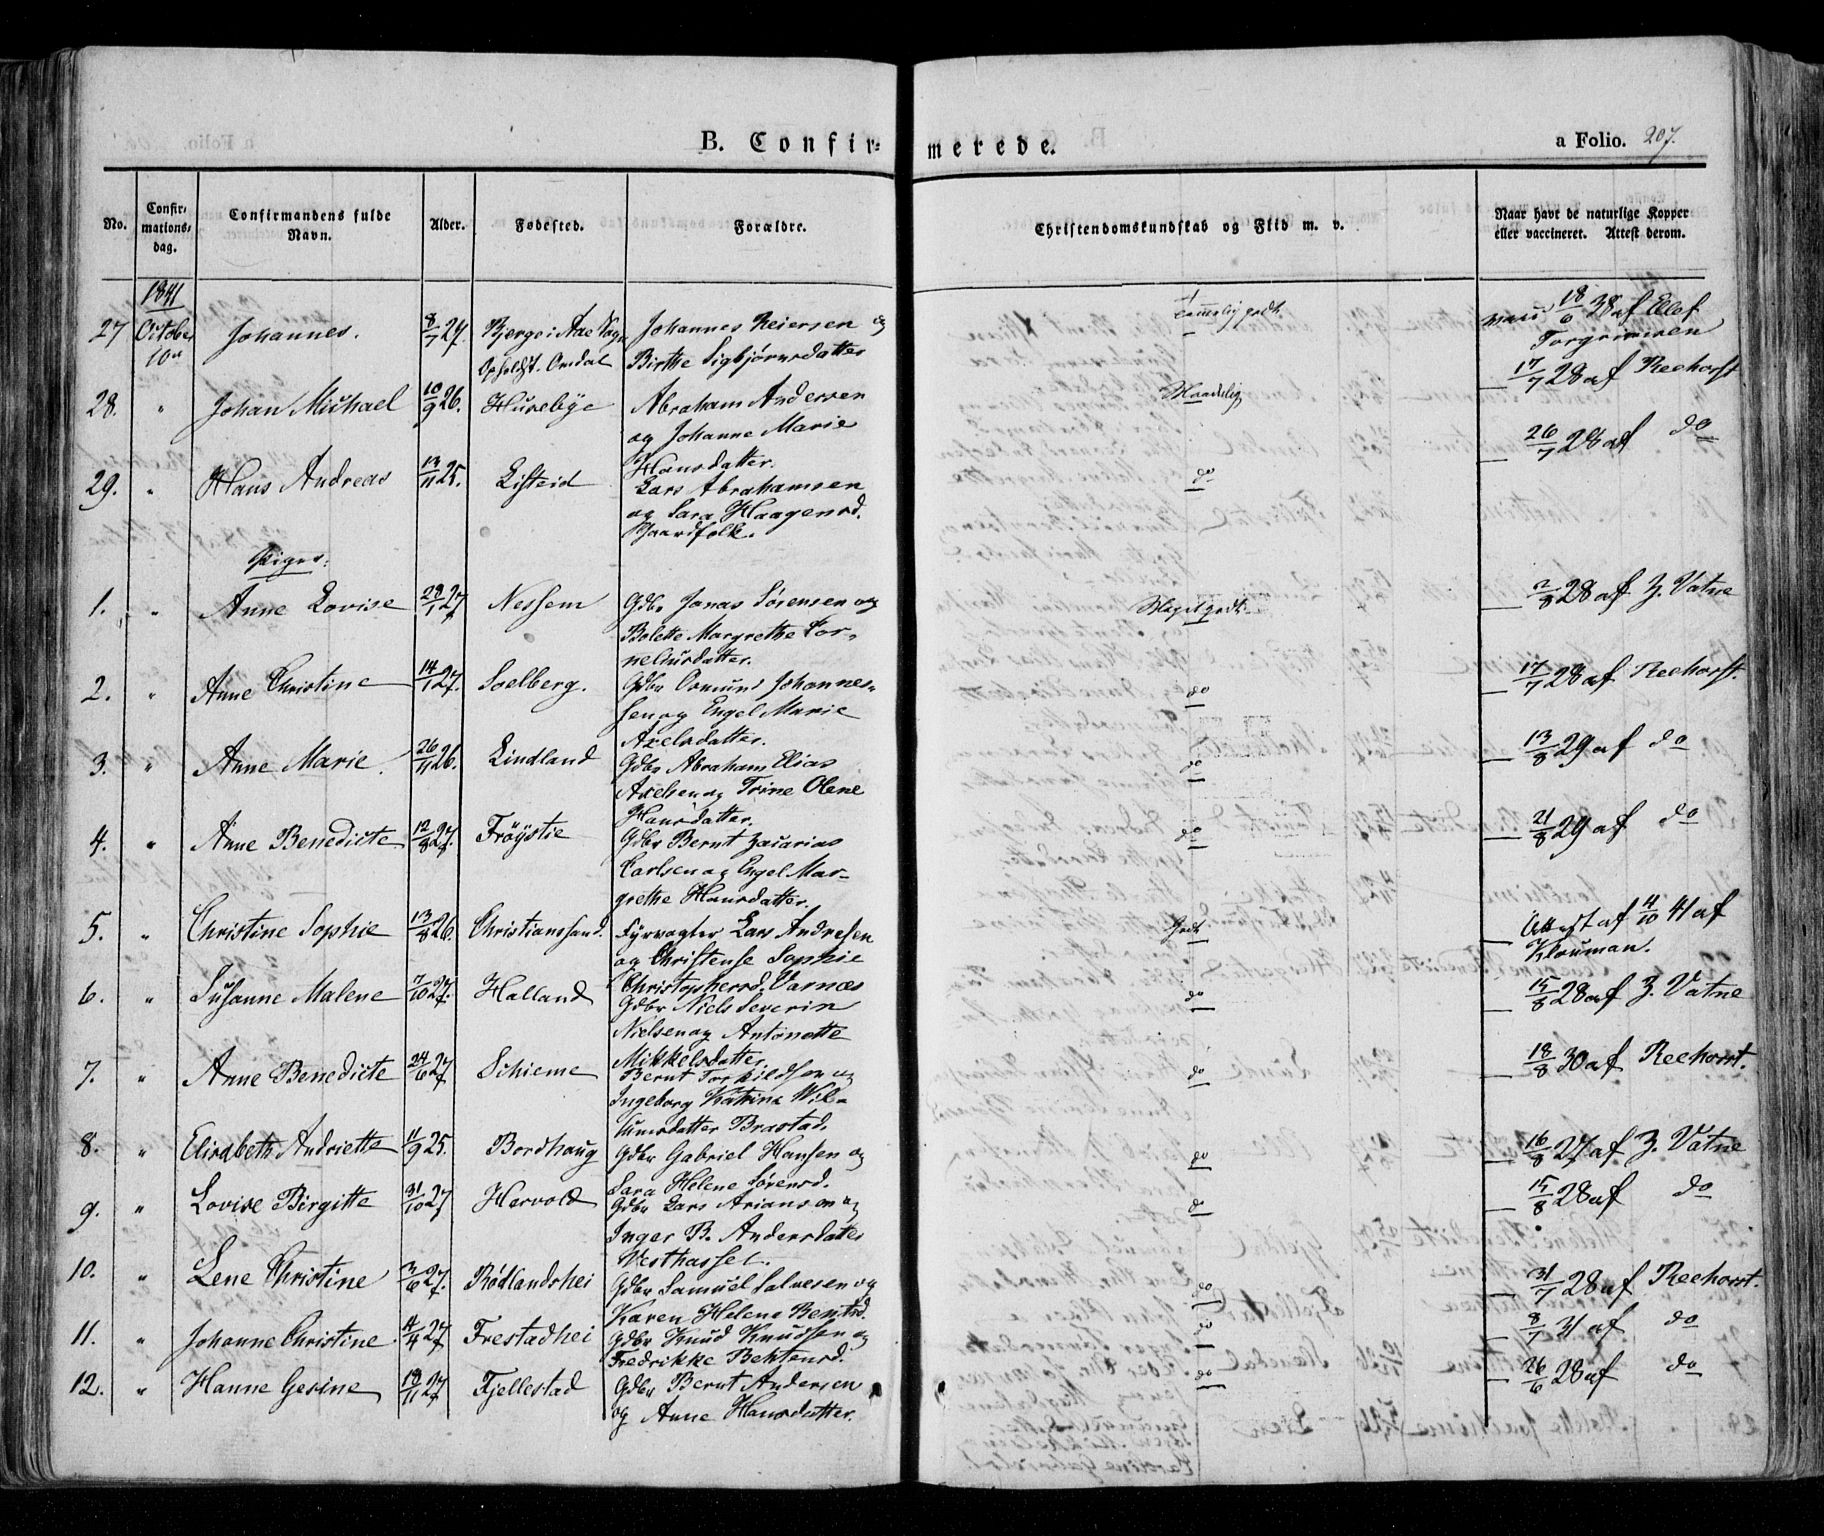 B. Confir-merede.
a Folio. 207.
No.
Confir-
mations-
dag.
Confirmandens fulde
Navn.
Alder.
Fødested.
Forældre.
Christendomskundskab og Flid m. v.
Naar havt de naturlige Kopper
eller vaccineret. Attest derom.
1841
27 October 10de Johannes. 8/7 27. Bjerge i Aae Sogn Opholdst. Omdal
Johannes Reiersen og
Birthe Sigbjørnsdatter
temmelig godt
vacc 18/6 38 af Ellef
Torgrimsen
28. " Johan Michael 10/9 26. Husebye
Abraham Andersen
og Johanne Marie
Hansdatter.
Maadelig
17/7 28 af Reehorst
29. " Hans Andreas 13/11 25. Listeid
Lars Abrahamsen
og Sara Haagensd.
Gaardfolk.
do
26/7 28 af do
Piger.
1. " Anne Lovise 28/1 27 Nessem
Gdbr Jonas Sørensen og
Bolette Margrethe Cor-
neliusdatter.
Meget godt
2/8 28 af Z. Vatne
2. " Anne Christine 14/1 27. Soelberg.
Gdbr Osmund Johannes-
sen og Engel Marie
Axelsdatter.
do
17/7 28 af Reehorst.
3. " Anne Marie 26/11 26. Lindland
Gdbr Abraham Elias
Axelsen og Trine Olene
Hansdatter.
do
13/8 29 af do
4. " Anne Benedicte 12/8 27. Frøystie
Gdbr Bernt Zacarias
Carlsen og Engel Mar-
grethe Hansdatter.
do
21/8 29 af do
5. " Christine Sophie 13/8 26. Christianssand.
Fyrvogter Lars Andresen
og Christense Sophie
Christophersd. Varnæs
Godt
Attest af 4/10 41 af
Klouman.
6. " Susanne Malene 7/10 27. Halland
Gdbr Niels Severin
Nielsen og Antonette
Mikkelsdatter
do
15/8 28 af Z. Vatne
7. " Anne Benedicte 24/6 27 Schieme
Bernt Torkildsen og
Ingeborg Katrina Wil-
lumsdatter Brastad.
do
18/8 30 af Reehorst.
8. " Elisabeth Andriette 11/9 25. Bordhaug
Gdbr Gabriel Hansen og
Sara Helene Sørensd.
do
16/8 27 af Z. Vatne
9. " Lovise Birgitte 31/10 27 Hervold
Gdbr Lars Arianson og
Inger B. Andersdatter
Vesthasset.
do
15/8 28 af do
10. " Lene Christine 3/6 27. Rødlandshei
Gdbr Samuel Salvesen og
Karen Helene Berntsd.
do
31/7 28 af Reehorst.
11. " Johanne Christine 4/4 27 Frestadhei
Gdbr Knud Knudsen og
Fredrikke
do
8/7 31 af do
12. " Hanne Gesine 18/11 27 Fjellestad
Gdbr Bernt Andersen
og Anne Hansdatter.
do
26/6 28 af do